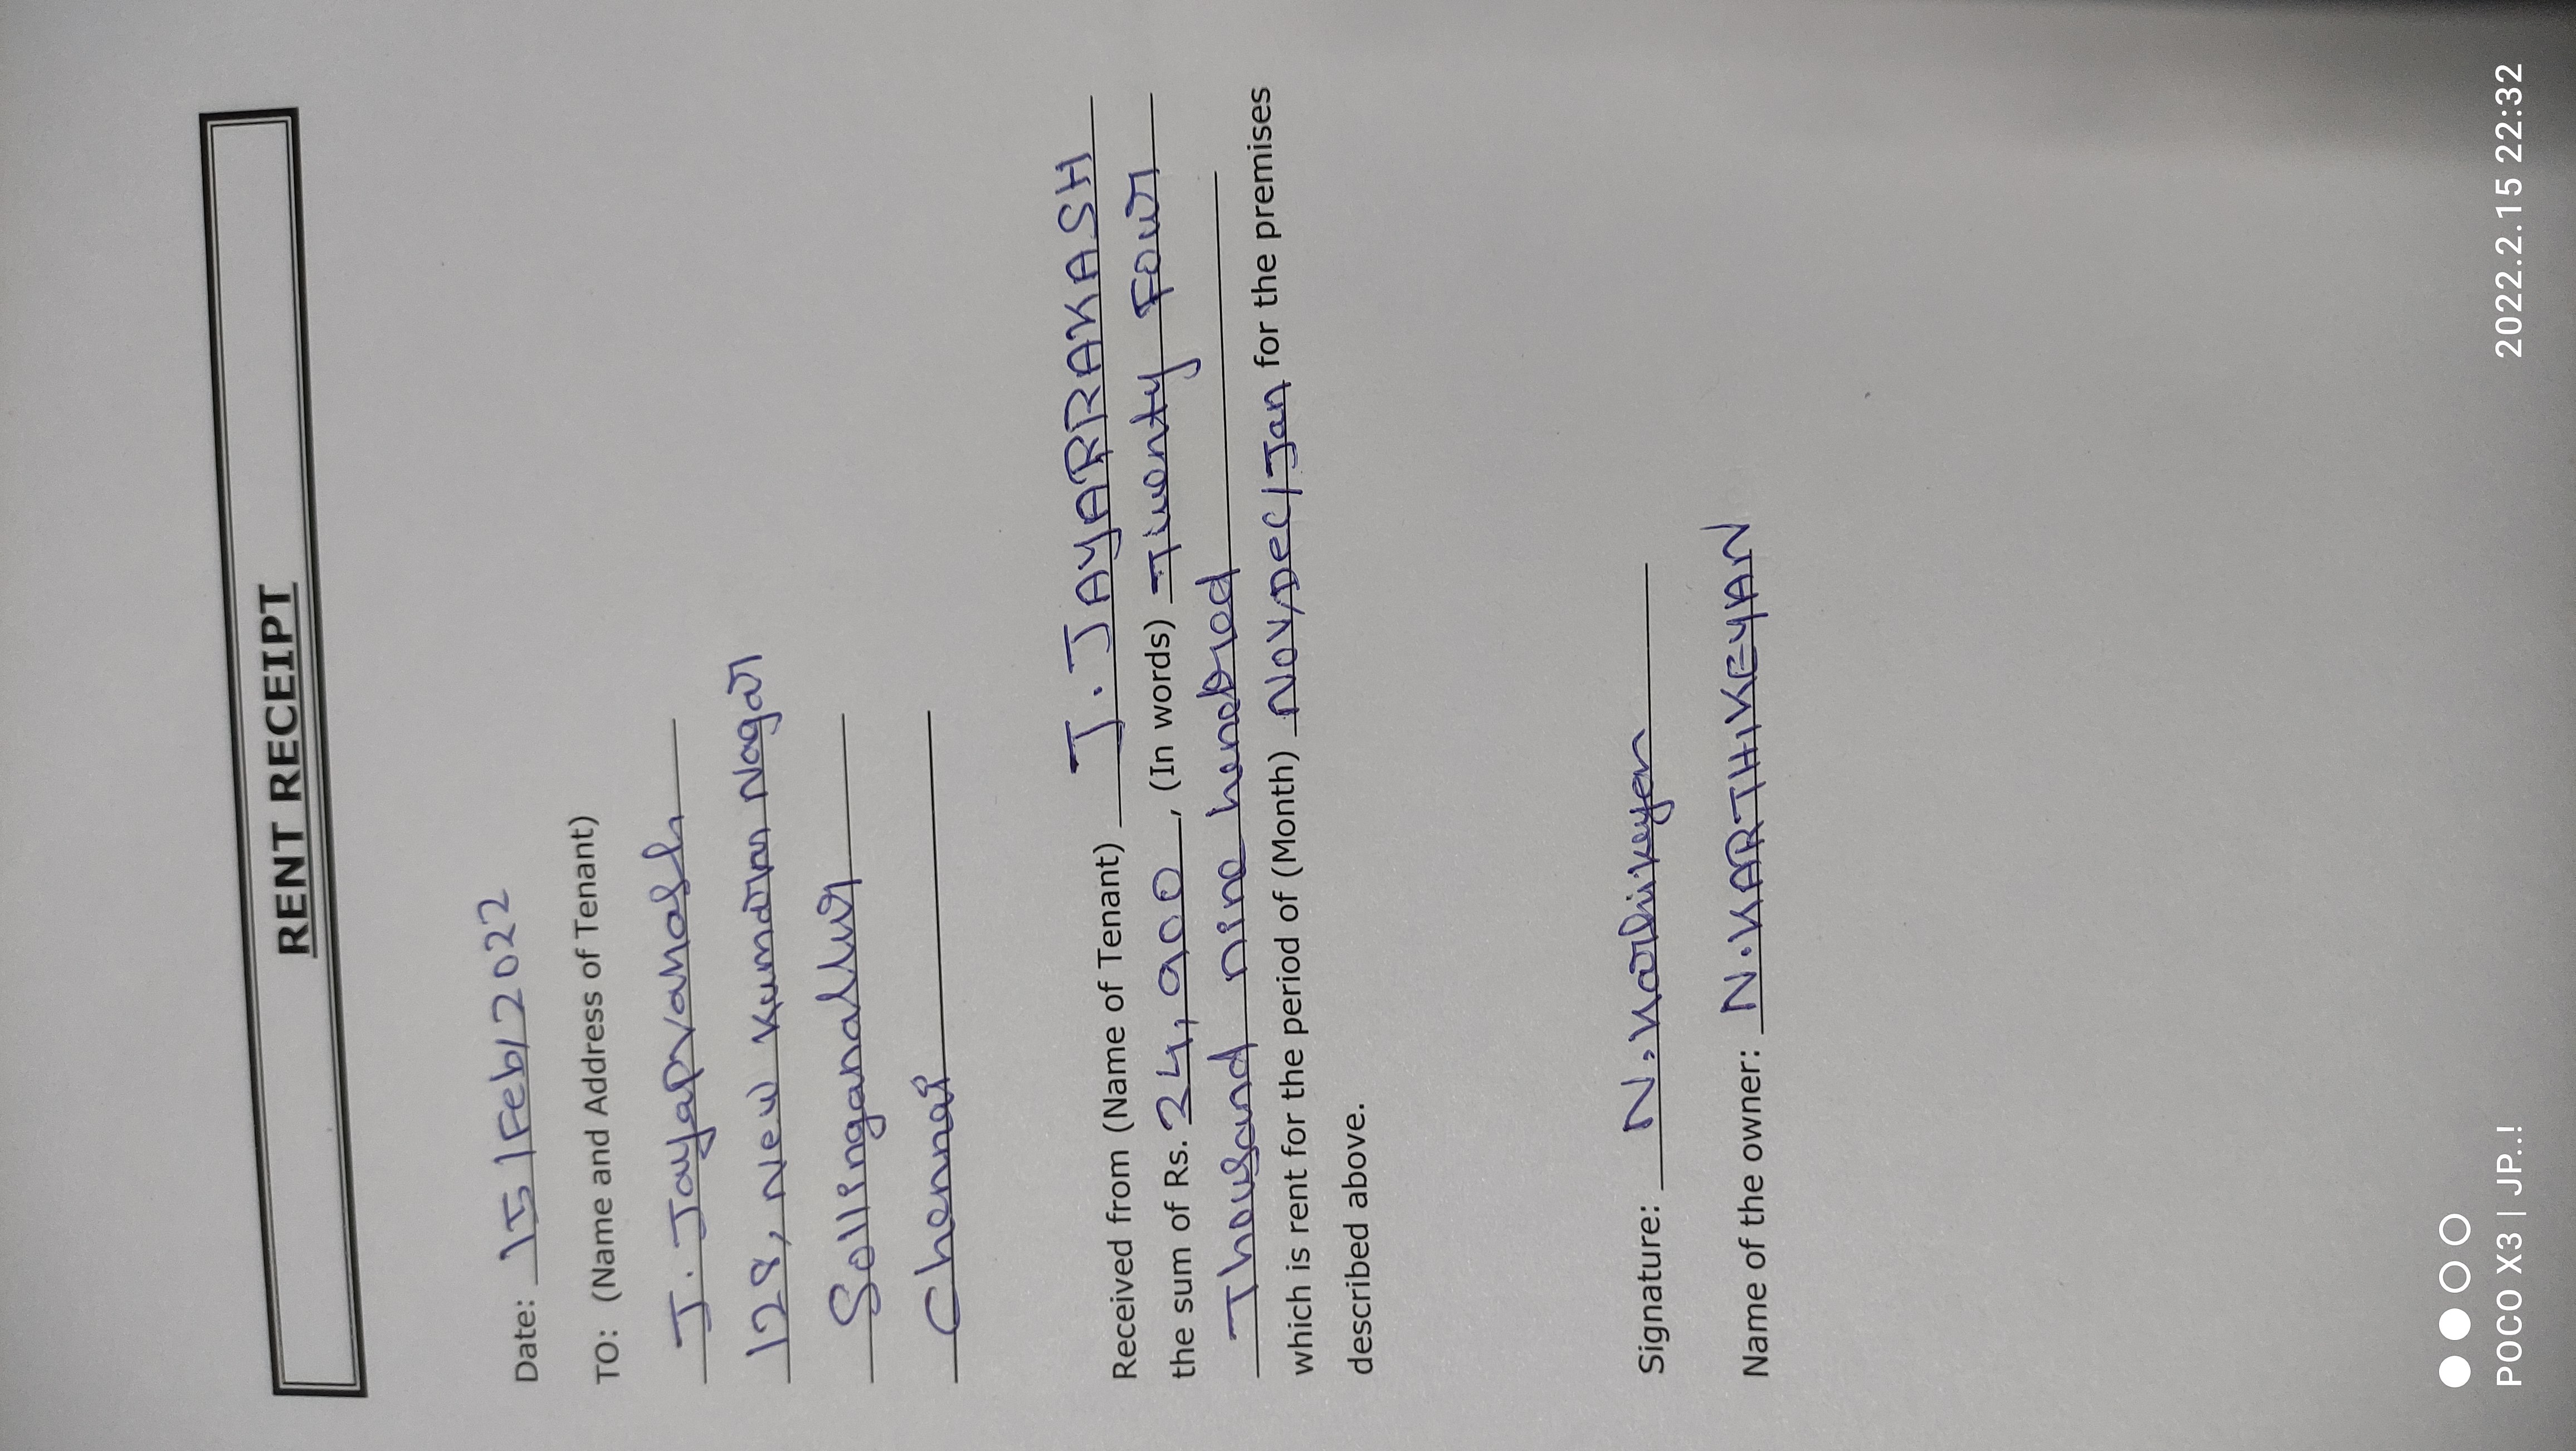 RENT RECEIPT
Date: 15/Feb/2022
TO: (Name and Address of Tenant)
J. Jayaprakash
128, New Kumaran Nagar
Sollinganallur
Chennai
Received from (Name of Tenant) J. JAYAPRAKASH
the sum of Rs. 24,900, (In words) Twenty Four
Thousand nine hundred
which is rent for the period of (Month) Nov/Dec/Jan for the premises
described above.
Signature: N. Karthikeyan
Name of the owner: N. KARTHIKEYAN
POCO X3 | JP..!
2022.2.15 22:32